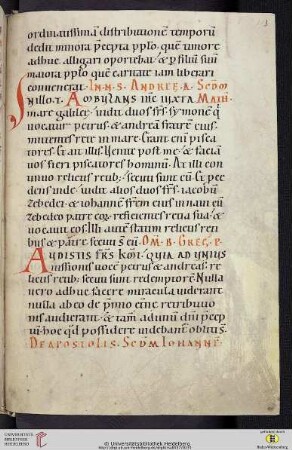 ordinatissimā distributionē temporū
dedit minora p̄cepta pp̄lo quē timore
adhuc alligari oportebat & p̄ filiū suū
maiora pp̄lo quē caritate iam liberari
conuenerat. IN N S. ANDREE. A. SCDM
In illo t̄. AMBULANS ihc iuxta MATH.
mare galileę uidit duos fr̄s symonē q̄
uocatur petrus & andreā fratrē eius.
mittentes rete in mare. Erant enī pisca
tores. Et ait illis Uenite post me & faciā
uos fieri piscatores hominū. At illi con
tinuo relictis retib; secuti sunt eū. Et p̄ce
dens inde uidit alios duos fr̄s iacobū
zebedei & iohannē fr̄em eius in naui cū
zebedeo patre eoꝝ reficientes retia sua &
uocauit eos. Illi autē statim relictis reti
bus & patre secuti s̄ eū. OM. B. GREG. P.
AUDISTIS FR̄S KMI. QUIA AD UNIUS
iussionis uocē petrus & andreas relictis
retib; secuti sunt redemptorē. Nulla
uero adhuc facere miracula uiderant
nulla ab eo de p̄mio etn̄e retributio
nis audierant. & tam̄ ad unū dn̄i p̄cep
tū hoc qd̄ possidere uidebant obliti s̄.
DE APOSTOLIS. SCDM IOHANNĒ
1
UNIVERSITÄTS-
BIBLIOTHEK
HEIDELBERG
© Universitätsbibliothek Heidelberg